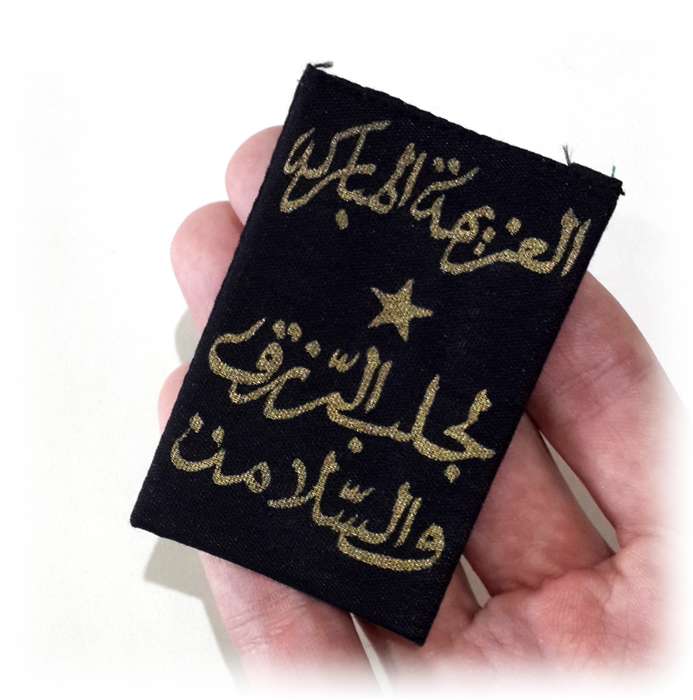 العزيمة المباركه
لجلب الرزق
والسلامه